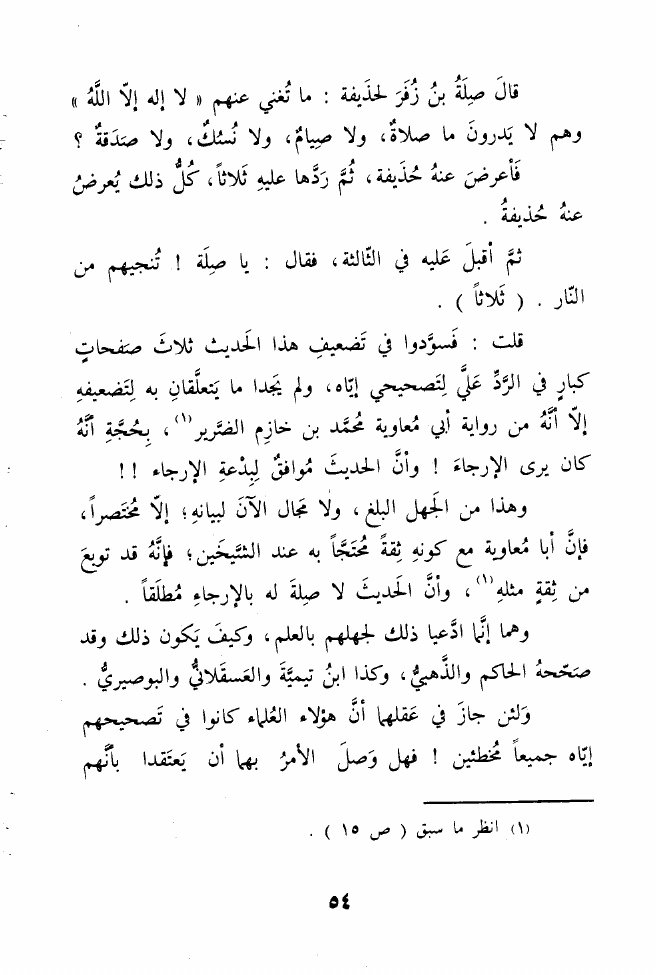 قالَ صِلَةُ بنُ زُفَرَ لحذَيفة : ما تُغني عنهم « لا إله إلاّ اللَّهُ »
وهم لا يَدرونَ ما صلاةٌ، ولا صِيامٌ، ولا نُسُكٌ، ولا صَدَقةٌ ؟
فَأعرضَ عنهُ حُذَيفة، ثُمَّ رَدَّها عليهِ ثَلاثاً، كُلُّ ذلك يُعرضُ
عنهُ حُذيفةُ .
ثمَّ أقبلَ عَليه في الثّالثة، فقال : يا صِلَة ! تُنجيهم من
النّار . ( ثَلاثاً ) .
قلت : فَسوَّدوا في تَضعيفِ هذا الحَديث ثلاثَ صَفحاتٍ
كبارٍ في الرَّدِّ عَليَّ لِتَصحيحي إيّاه، ولم يَجدا ما يَتعلَّقانِ به لِتَضعيفهِ
إلاّ أنَّهُ من رواية أبي مُعاوية مُحمَّد بن خازِم الضَّرير(١)، بِحُجَّةِ أنَّهُ
كان يرى الإرجاءَ ! وأنَّ الحديثَ مُوافقٌ لِبِدْعةِ الإرجاء !!
وهذا من الجَهل البلغ، ولا مجال الآنَ لبيانهِ؛ إلاّ مُختَصراً،
فإنَّ أبا مُعاوية مع كونهِ ثِقةً مُحتَجَّاً به عند الشَّيخَين؛ فإنَّهُ قد توبعَ
من ثِقةٍ مثلهِ(١)، وأنَّ الحَديثَ لا صِلةَ له بالإرجاءِ مُطلَقاً .
وهما إنَّما ادَّعيا ذلك لجهلهم بالعلم، وكيفَ يَكون ذلك وقد
صَحّحهُ الحاكم والذَّهبيُّ، وكذا ابنُ تيميَّةَ والعَسقَلانيُّ والبوصيريُّ .
وَلئن جازَ في عَقلهما أنَّ هؤلاء العُلماء كانوا في تَصحيحهم
إيّاه جميعاً مُخطئين ! فهل وَصلَ الأمرُ بهما أن يَعتَقدا بأنَّهم
(١) انظر ما سبق ( ص ١٥ ) .
٥٤